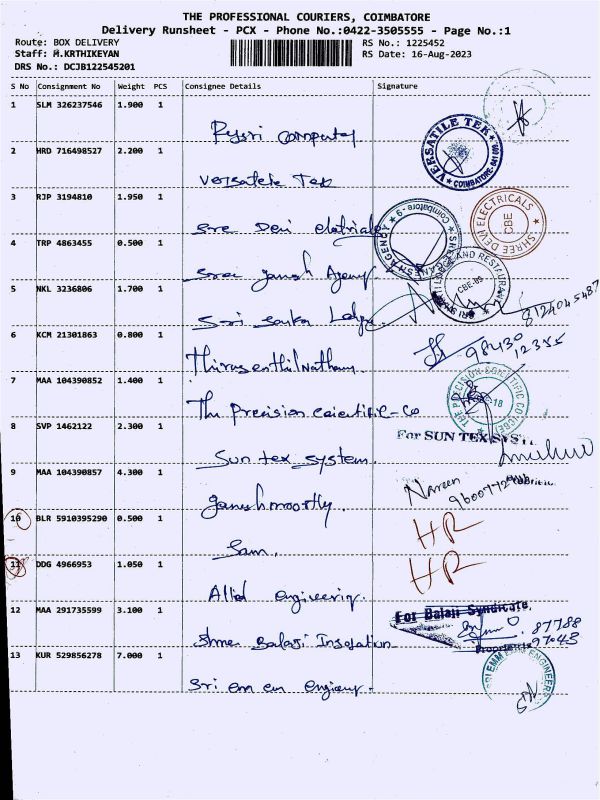 THE PROFESSIONAL COURIERS, COIMBATORE
Delivery Runsheet - PCX - Phone No.:0422-3505555 - Page No.:1
Route: BOX DELIVERY
RS No.: 1225452
Staff: M.KRTHIKEYAN
RS Date: 16-Aug-2023
DRS No.: DCJB122545201
S No Consignment No Weight PCS Consignee Details Signature
1 SLM 326237546 1.900 1
computer
VERSATILE TEK COIMBATORE-641
2 HRD 716498527 2.200 1
versatile Tex
3 RJP 3194810 1.950 1
sree Devi
SHREE DEVI ELECTRICALS CBE
Coimbatore - 9
4 TRP 4863455 0.500 1
sree ganesh Agency
LODGE AND RESTAURANT
5 NKL 3236806 1.700 1
Sri Lodge
8124045487
6 KCM 21301863 0.800 1
98430
12355
Thirusenthilnathan
7 MAA 104390852 1.400 1
THE PRECISION SCIENTIFIC CO (CBE)
The Precision -Co
8 SVP 1462122 2.300 1
For SUN TEX SYST
Sun tex system.
9 MAA 104390857 4.300 1
Naveen
ganeshmoorthy.
10 BLR 5910395290 0.500 1
HR
Sam.
11 DDG 4966953 1.050 1
HR
Allied
12 MAA 291735599 3.100 1
For Balaji Syndicate.
87788
97043
Balaji
13 KUR 529856278 7.000 1
Sri em en
ENGINEERS